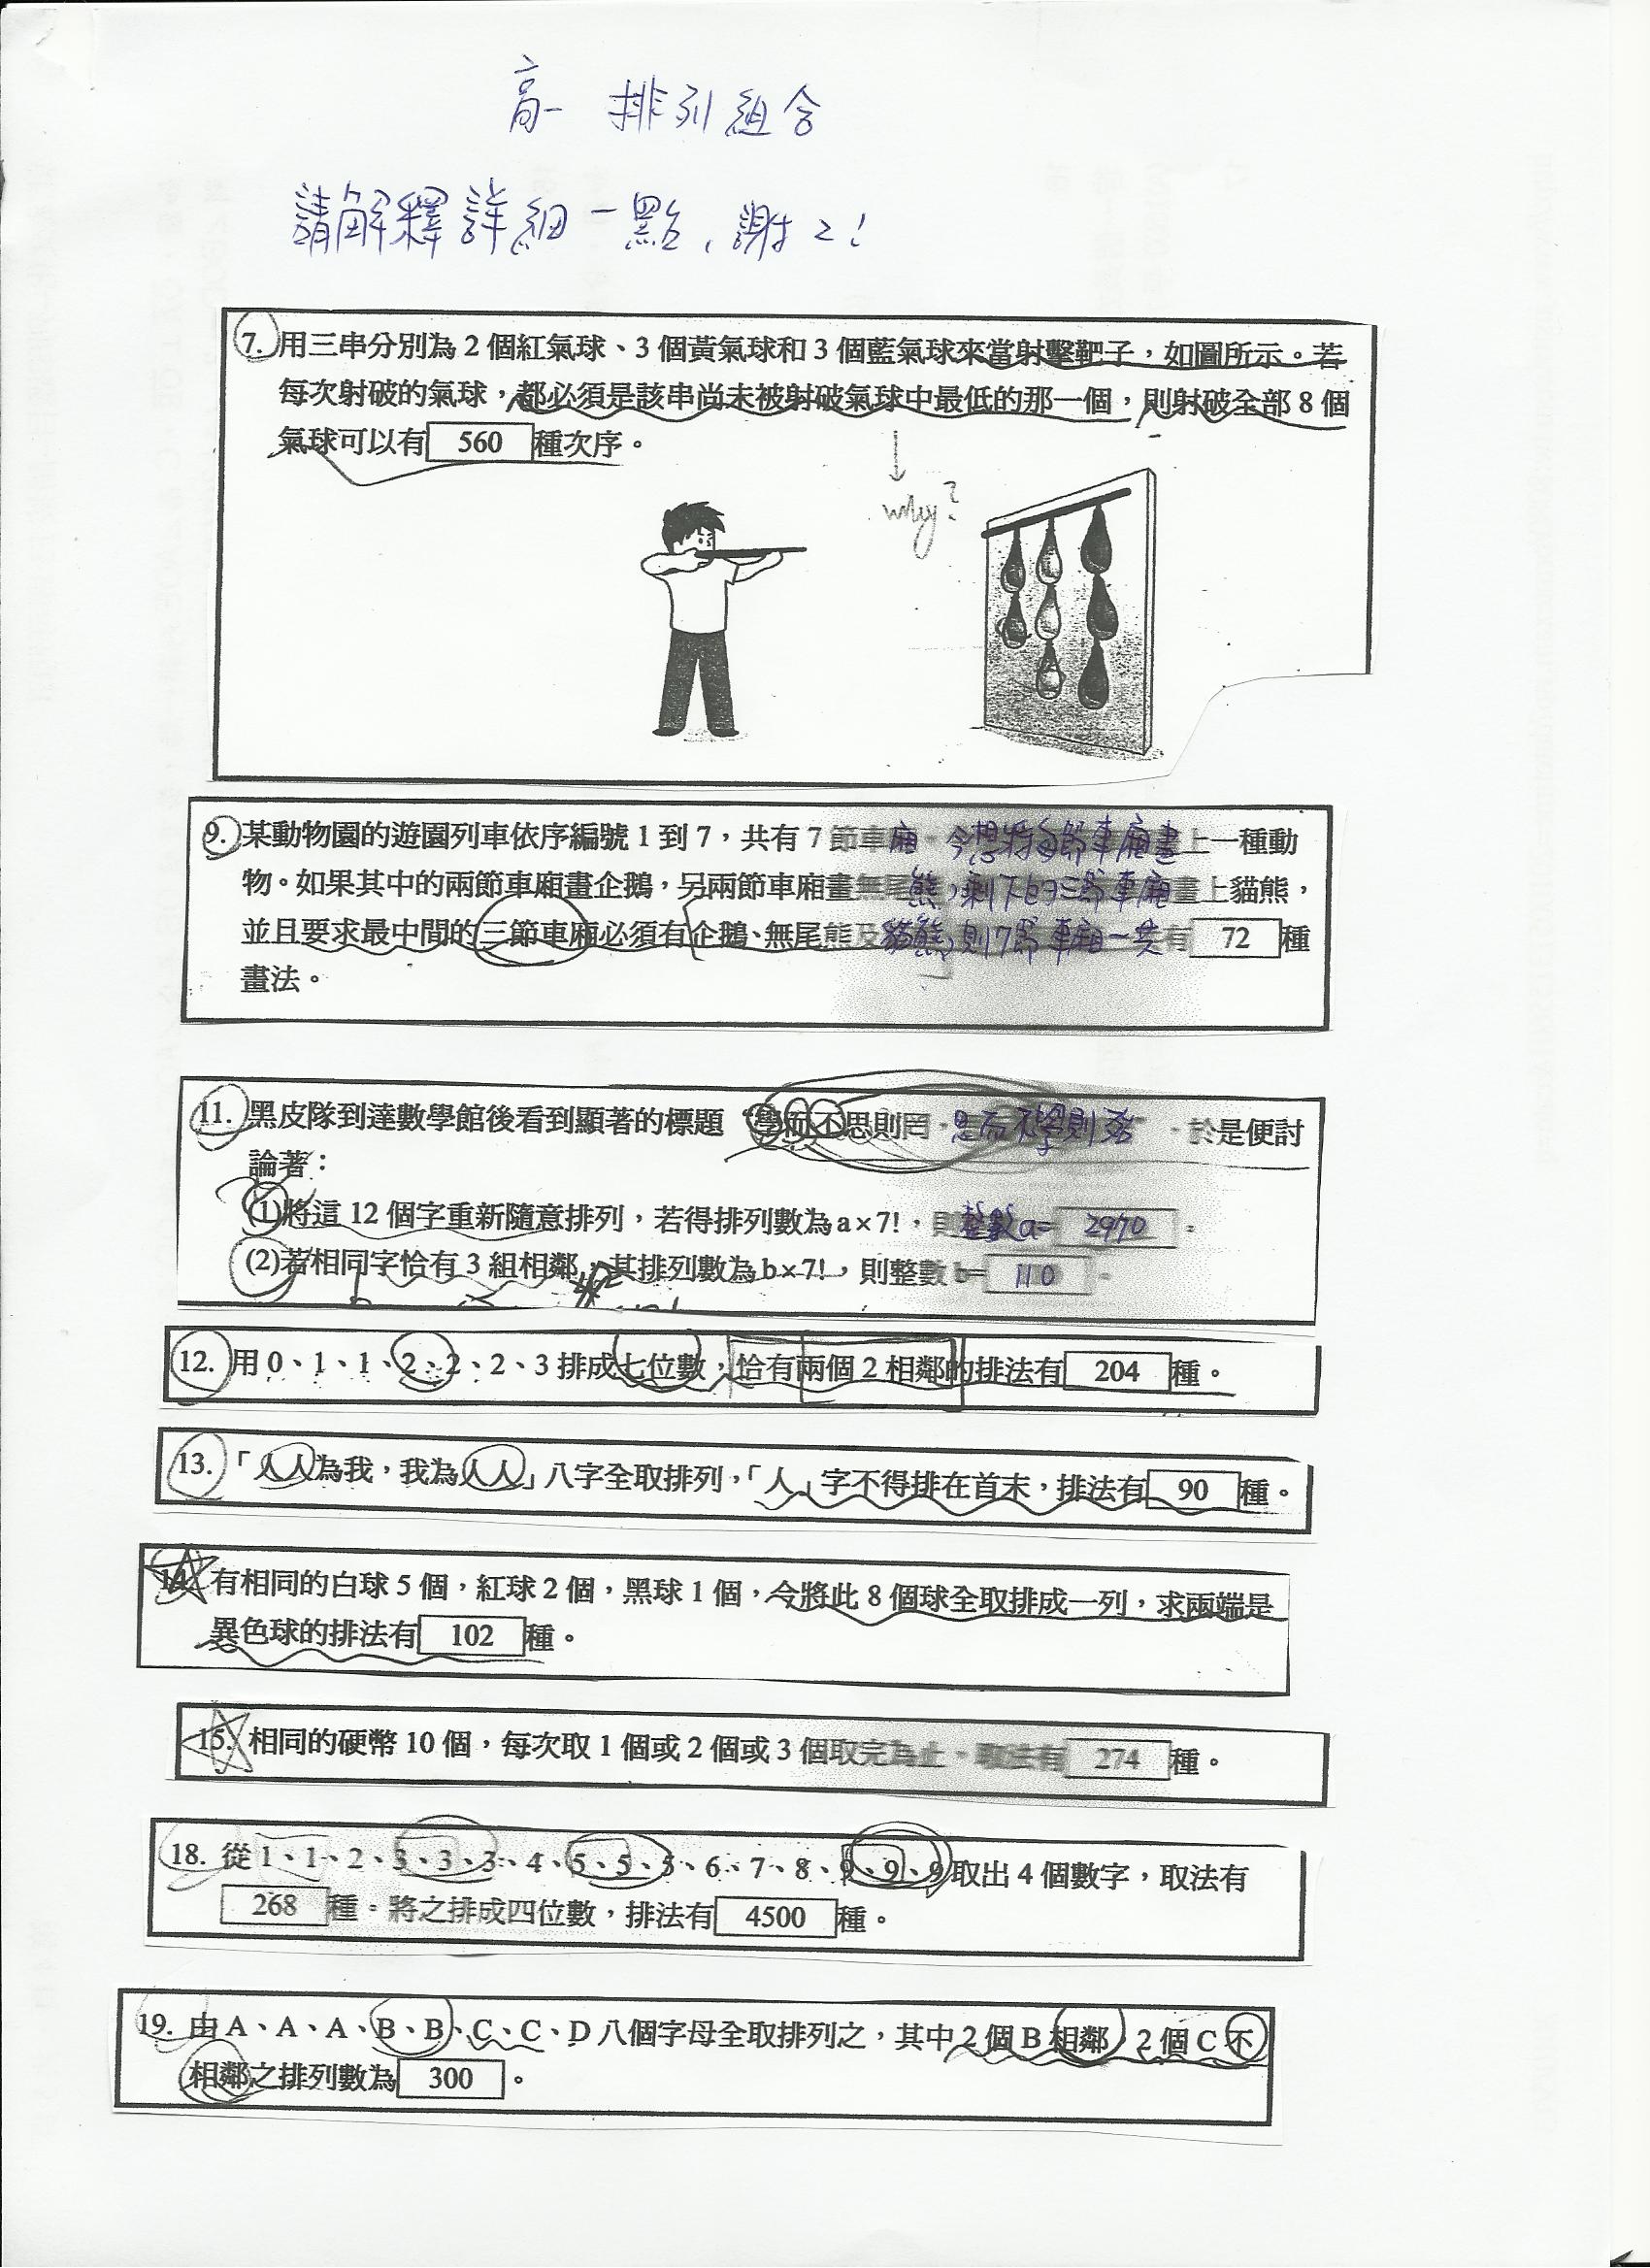 高一 排列組合
請解釋詳細一點，謝々!
7. 用三串分別為2個紅氣球、3個黃氣球和3個藍氣球來當射擊靶子，如圖所示。若
每次射破的氣球，都必須是該串尚未被射破氣球中最低的那一個，則射破全部8個
氣球可以有 560 種次序。
why?
9. 某動物園的遊園列車依序編號1到7，共有7節車廂。今想將每節車廂畫上一種動
物。如果其中的兩節車廂畫企鵝，另兩節車廂畫無尾熊，剩下的三節車廂畫上貓熊，
並且要求最中間的三節車廂必須有企鵝、無尾熊及貓熊，則7節車廂一共有 72 種
畫法。
11. 黑皮隊到達數學館後看到顯著的標題“學而不思則罔，思而不學則殆”。於是便討
論著：
(1)將這12個字重新隨意排列，若得排列數為a×7!，則整數a= 2970 。
(2)若相同字恰有3組相鄰，其排列數為b×7!，則整數b= 110 。
12. 用0、1、1、2、2、2、3排成七位數，恰有兩個2相鄰的排法有 204 種。
13. 「人人為我，我為人人」八字全取排列，「人」字不得排在首末，排法有 90 種。
14. 有相同的白球5個，紅球2個，黑球1個，令將此8個球全取排成一列，求兩端是
異色球的排法有 102 種。
15. 相同的硬幣10個，每次取1個或2個或3個取完為止，取法有 274 種。
18. 從1、1、2、3、3、3、4、5、5、5、6、7、8、9、9、9取出4個數字，取法有
268 種。將之排成四位數，排法有 4500 種。
19. 由A、A、A、B、B、C、C、D八個字母全取排列之，其中2個B相鄰，2個C不
相鄰之排列數為 300 。